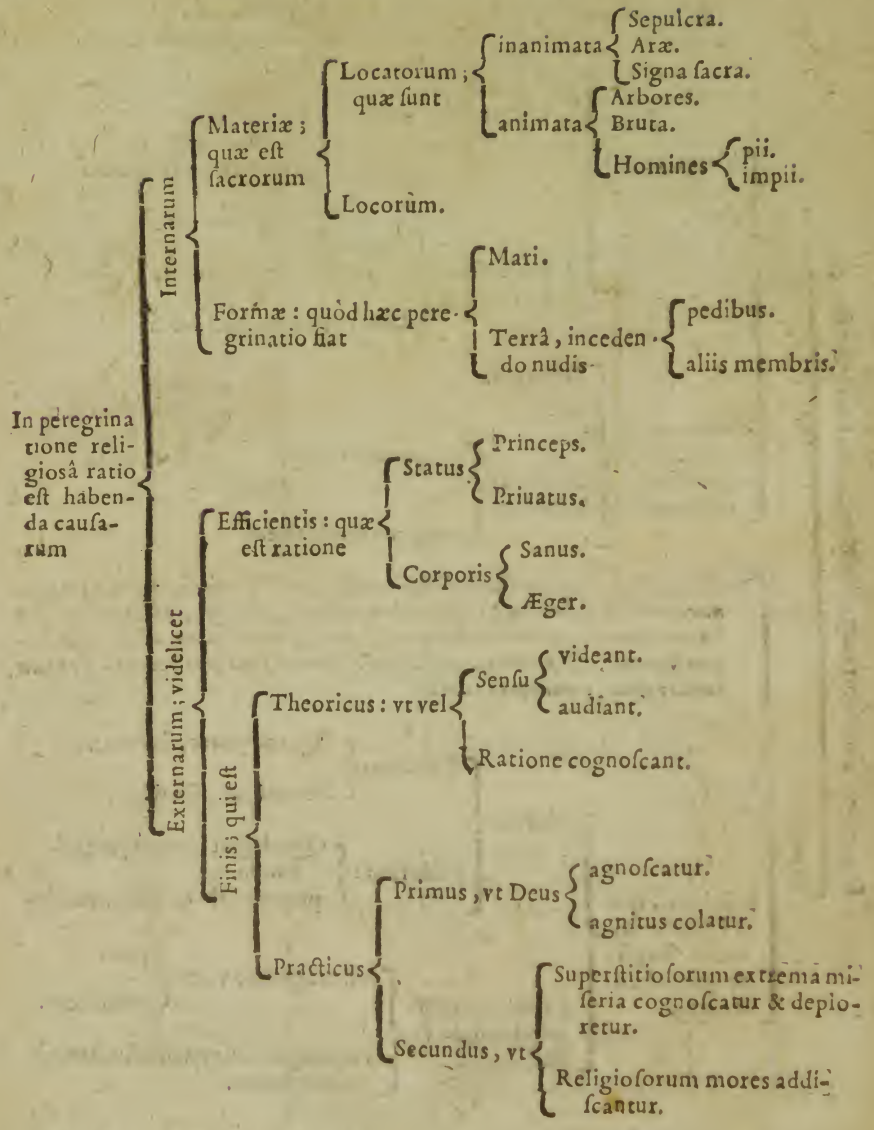 In peregrina
tione reli-
giosâ ratio
est haben-
da causa-
rum
Internarum
Materiæ ;
quæ est
sacrorum
Locatorum ;
quæ sunt
inanimata
Sepulcra.
Aræ.
Signa sacra.
animata
Arbores.
Bruta.
Homines
pii.
impii.
Locorùm.
Formæ : quòd hæc pere-
grinatio fiat
Mari.
Terrâ , inceden
do nudis
pedibus.
aliis membris.
Externarum ; videlicet
Efficientis : quæ
est ratione
Status
Princeps.
Priuatus.
Corporis
Sanus.
Æger.
Finis ; qui est
Theoricus : vt vel
Sensu
videant.
audiant.
Ratione cognoscant.
Practicus
Primus , vt Deus
agnoscatur.
agnitus colatur.
Secundus , vt
Superstitiosorum extrema mi-
seria cognoscatur & deplo-
retur.
Religiosorum mores addi-
scantur.